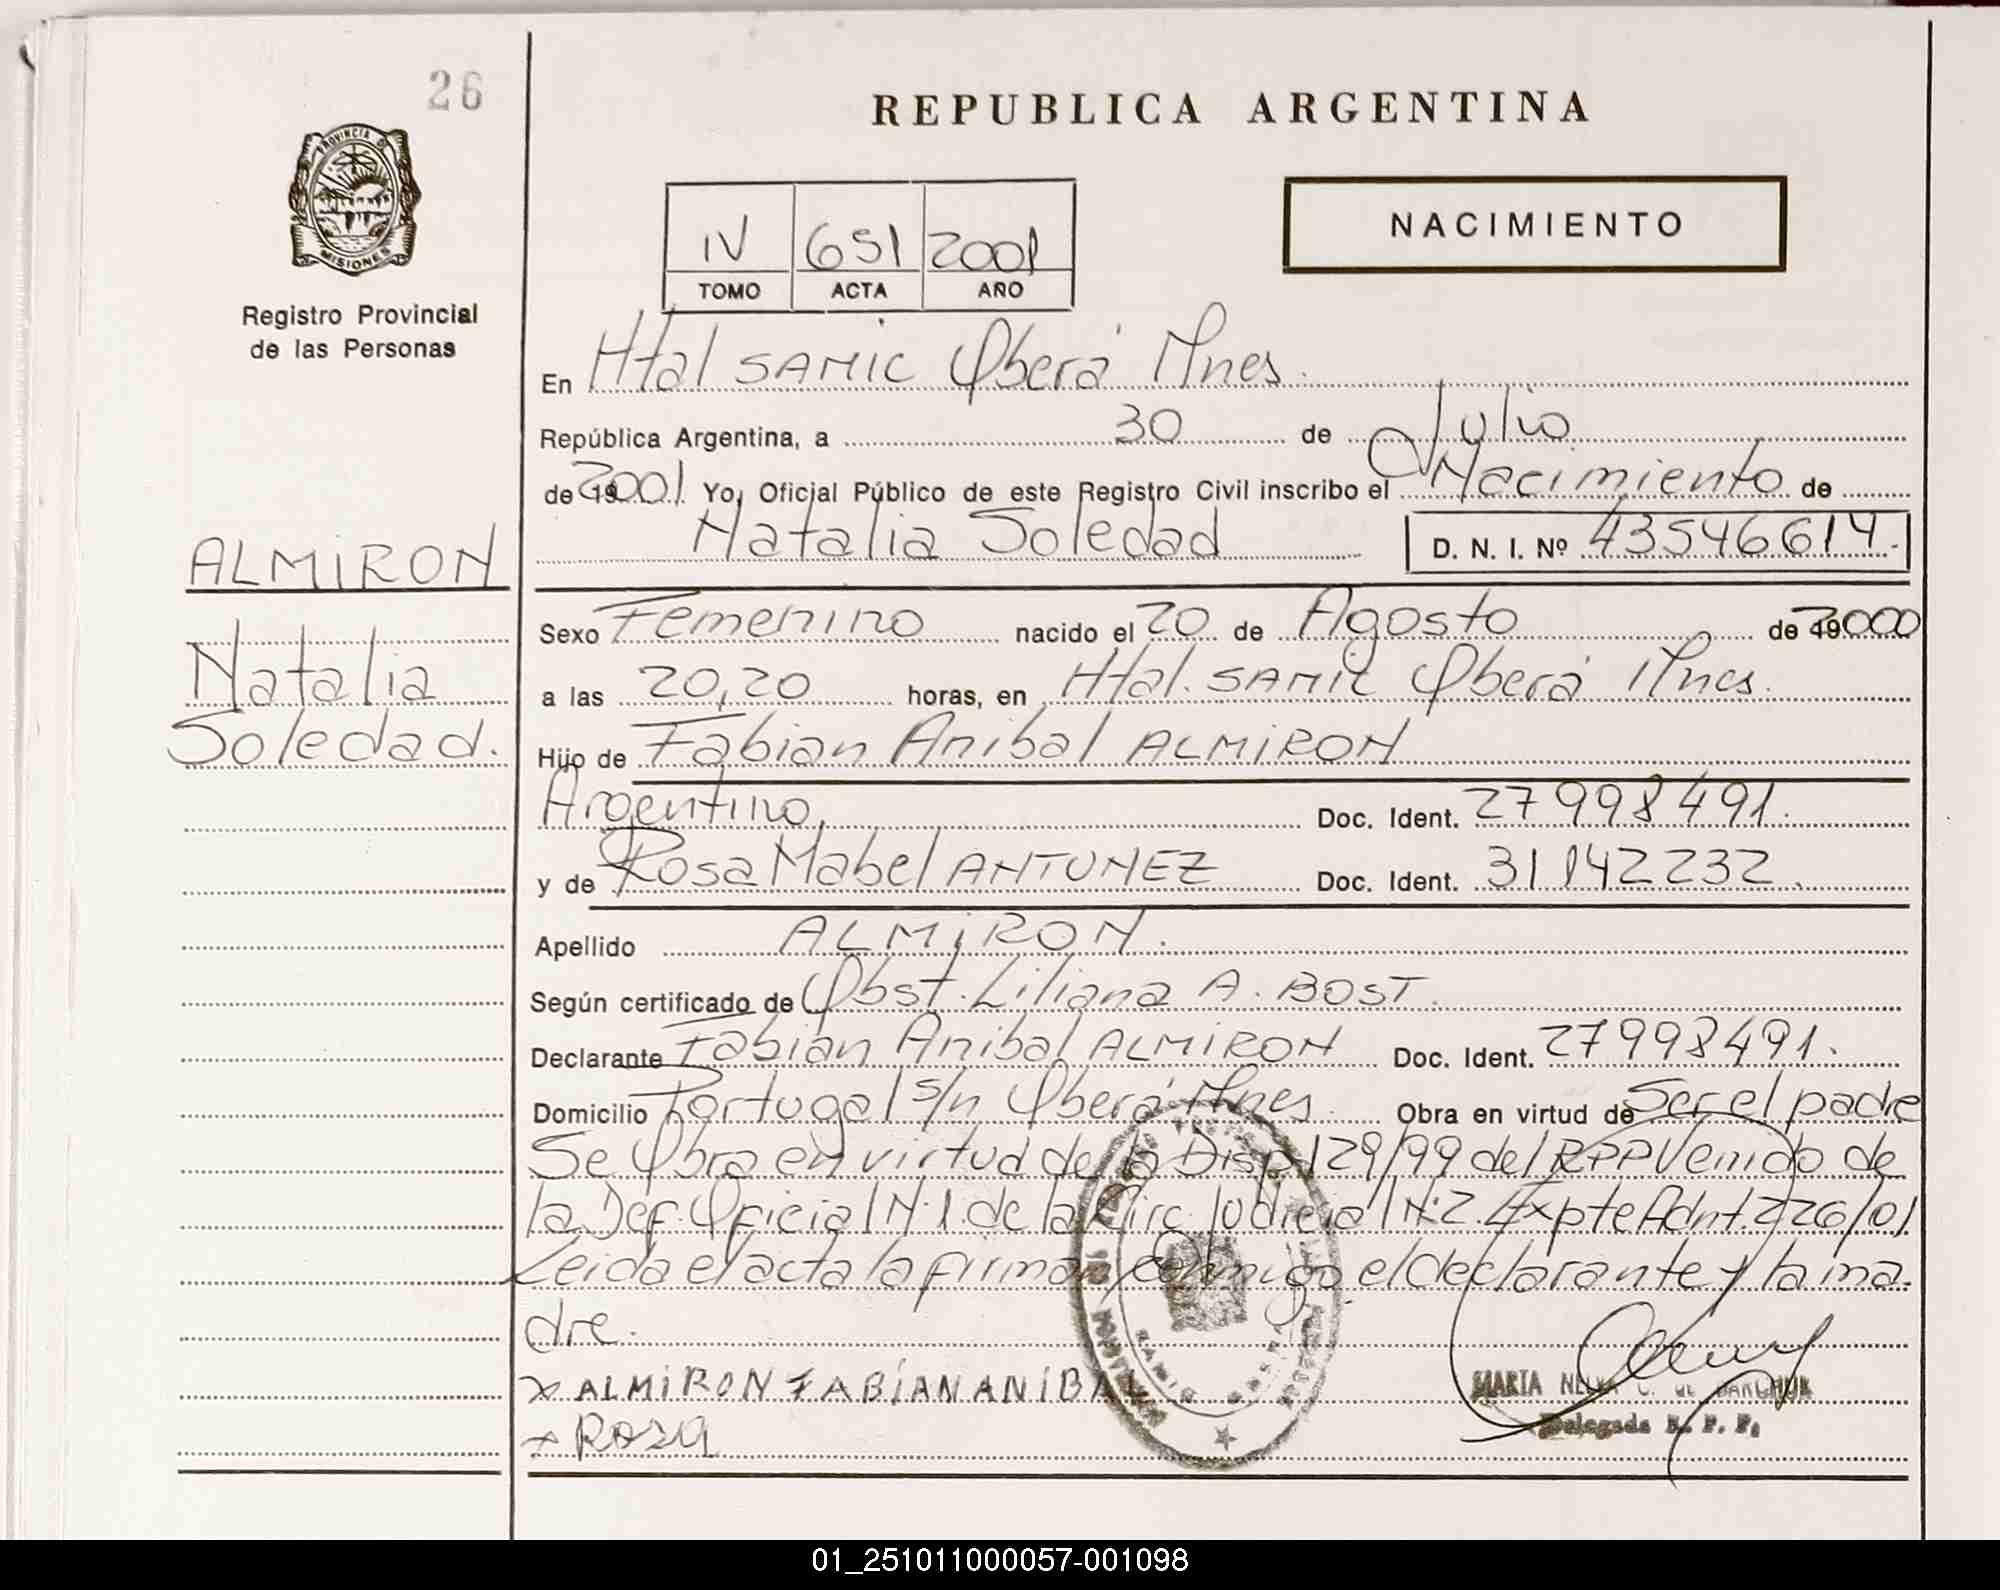 26
REPUBLICA ARGENTINA
PROVINCIA D
MISIONES
NACIMIENTO
IV 651 2001
TOMO ACTA AÑO
Registro Provincial
de las Personas
En Htal SAMIC Oberá Mnes.
República Argentina, a 30 de Julio
de 2001 Yo, Oficial Público de este Registro Civil inscribo el Nacimiento de
Natalia Soledad D. N. I. Nº 43546614.
ALMIRON
Natalia
Soledad.
Sexo Femenino nacido el 20 de Agosto de 2000
a las 20,20 horas, en Htal. SAMIC Oberá Mnes.
Hijo de Fabian Anibal ALMIRON
Argentino, Doc. Ident. 27998491.
y de Rosa Mabel ANTUNEZ Doc. Ident. 31142232.
Apellido ALMIRON.
Según certificado de Obst. Liliana A. BOST.
Declarante Fabian Anibal ALMIRON Doc. Ident. 27998491.
Domicilio Portugal s/n Oberá Mnes. Obra en virtud de Ser el padre
Se Obra en virtud de la Disp. 129/99 del RPP Venido de
la Def. Oficial N.1. de la Circ. Judicial N:2. Expte Adnt. 226/01
Leida el acta la firman conmigo el declarante y la ma.
dre.
x ALMIRON FABIAN ANIBAL
x Rosa
MARTA C. de
Delegada R. P. P.
01_251011000057-001098